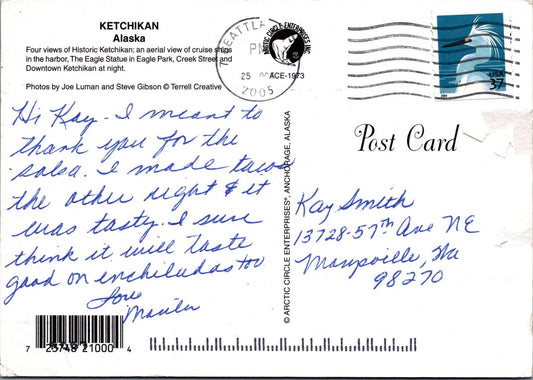 KETCHIKAN
Alaska
Four views of Historic Ketchikan; an aerial view of cruise ships
in the harbor, The Eagle Statue in Eagle Park, Creek Street and
Downtown Ketchikan at night.
Photos by Joe Luman and Steve Gibson © Terrell Creative
SEATTLE
PM
25
2005
ARCTIC CIRCLE ENTERPRISES INC.
ACE-1973
USA
37
Hi Kay - I meant to
thank you for the
salsa. I made tacos
the other night & it
was tasty. I sure
think it will taste
good on enchiladas too
Love
Post Card
Kay Smith
13728-57th Ave NE
Marysville, Wa
98270
© ARCTIC CIRCLE ENTERPRISES®, ANCHORAGE, ALASKA
7 25748 21000 4